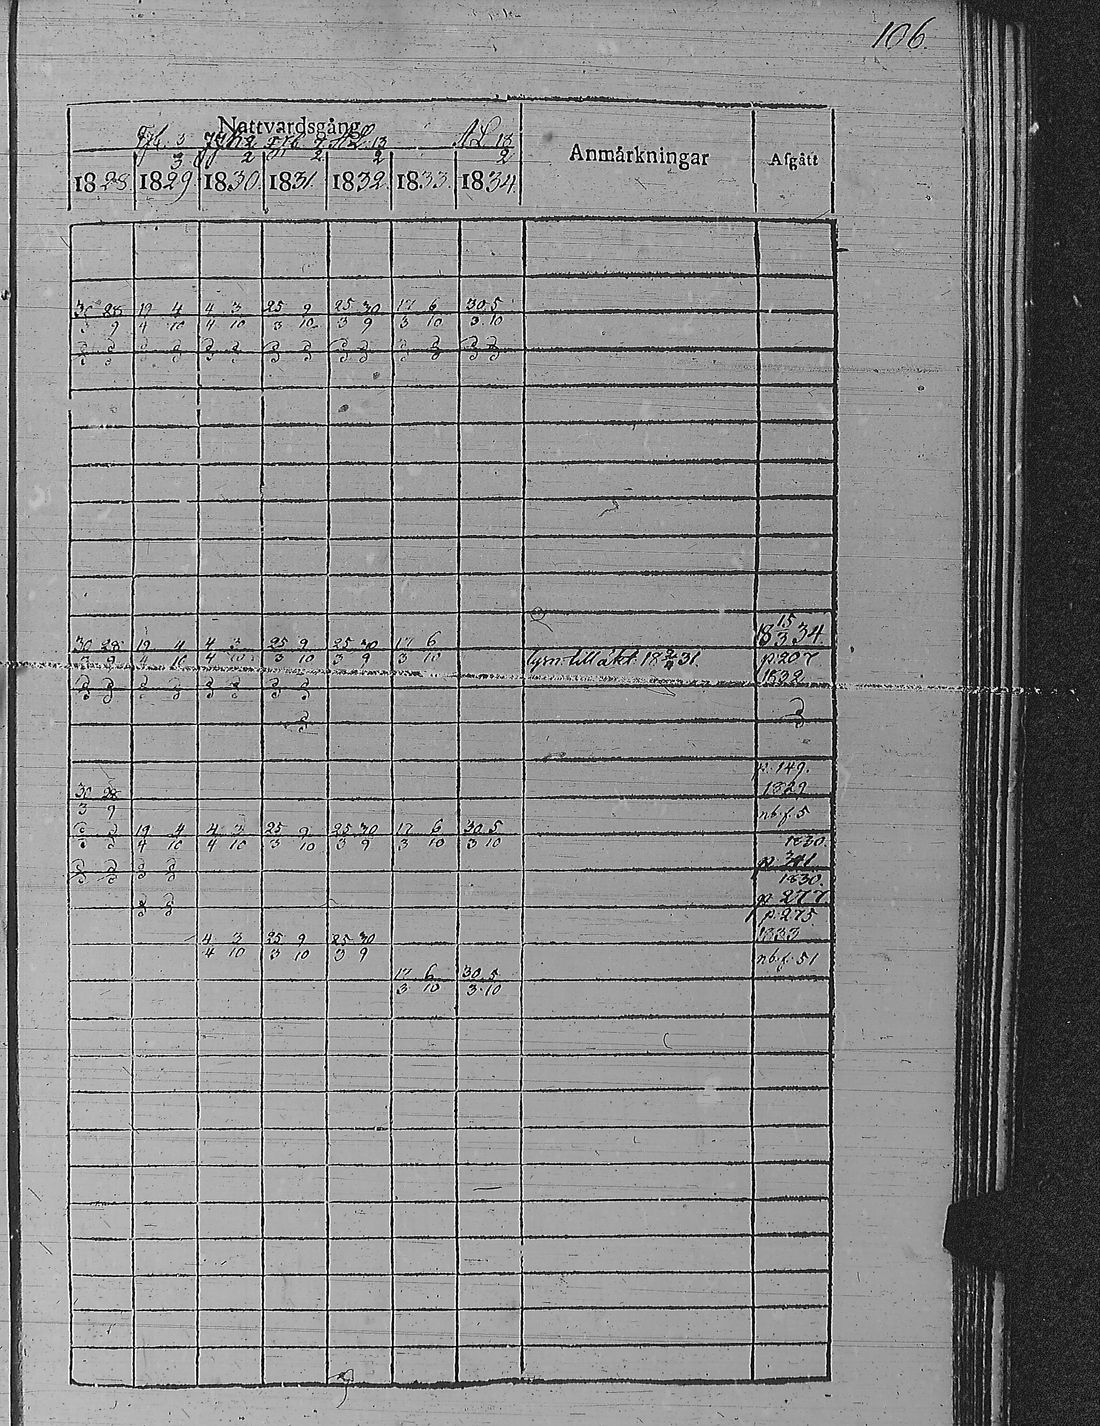 106.
Nattvardsgång
3 2 9 A L 13 A L 13
3 2 2 2 2
1828 1829 1830. 1831. 1832. 1833. 1834. Anmärkningar Afgått
30 28 19 4 4 3 25 9 25 30 17 6 30 5
3 9 4 10 4 10 3 10 3 9 3 10 3 10
15
18 3 34
30 28 19 4 4 3 25 9 25 30 17 6
3 9 4 10 4 10 3 10 3 9 3 10 lysn. till äkt. 18 31. p. 207
1832
p. 149.
30 28 1829
3 9 nb. f. 5
19 4 4 3 25 9 25 30 17 6 30 5
4 10 4 10 3 10 3 9 3 10 3 10 1830.
p. 341
1830.
p. 277
p. 275
4 3 25 9 25 30 1833
4 10 3 10 3 9 nb. f. 51
17 6 30 5
3 10 3 10